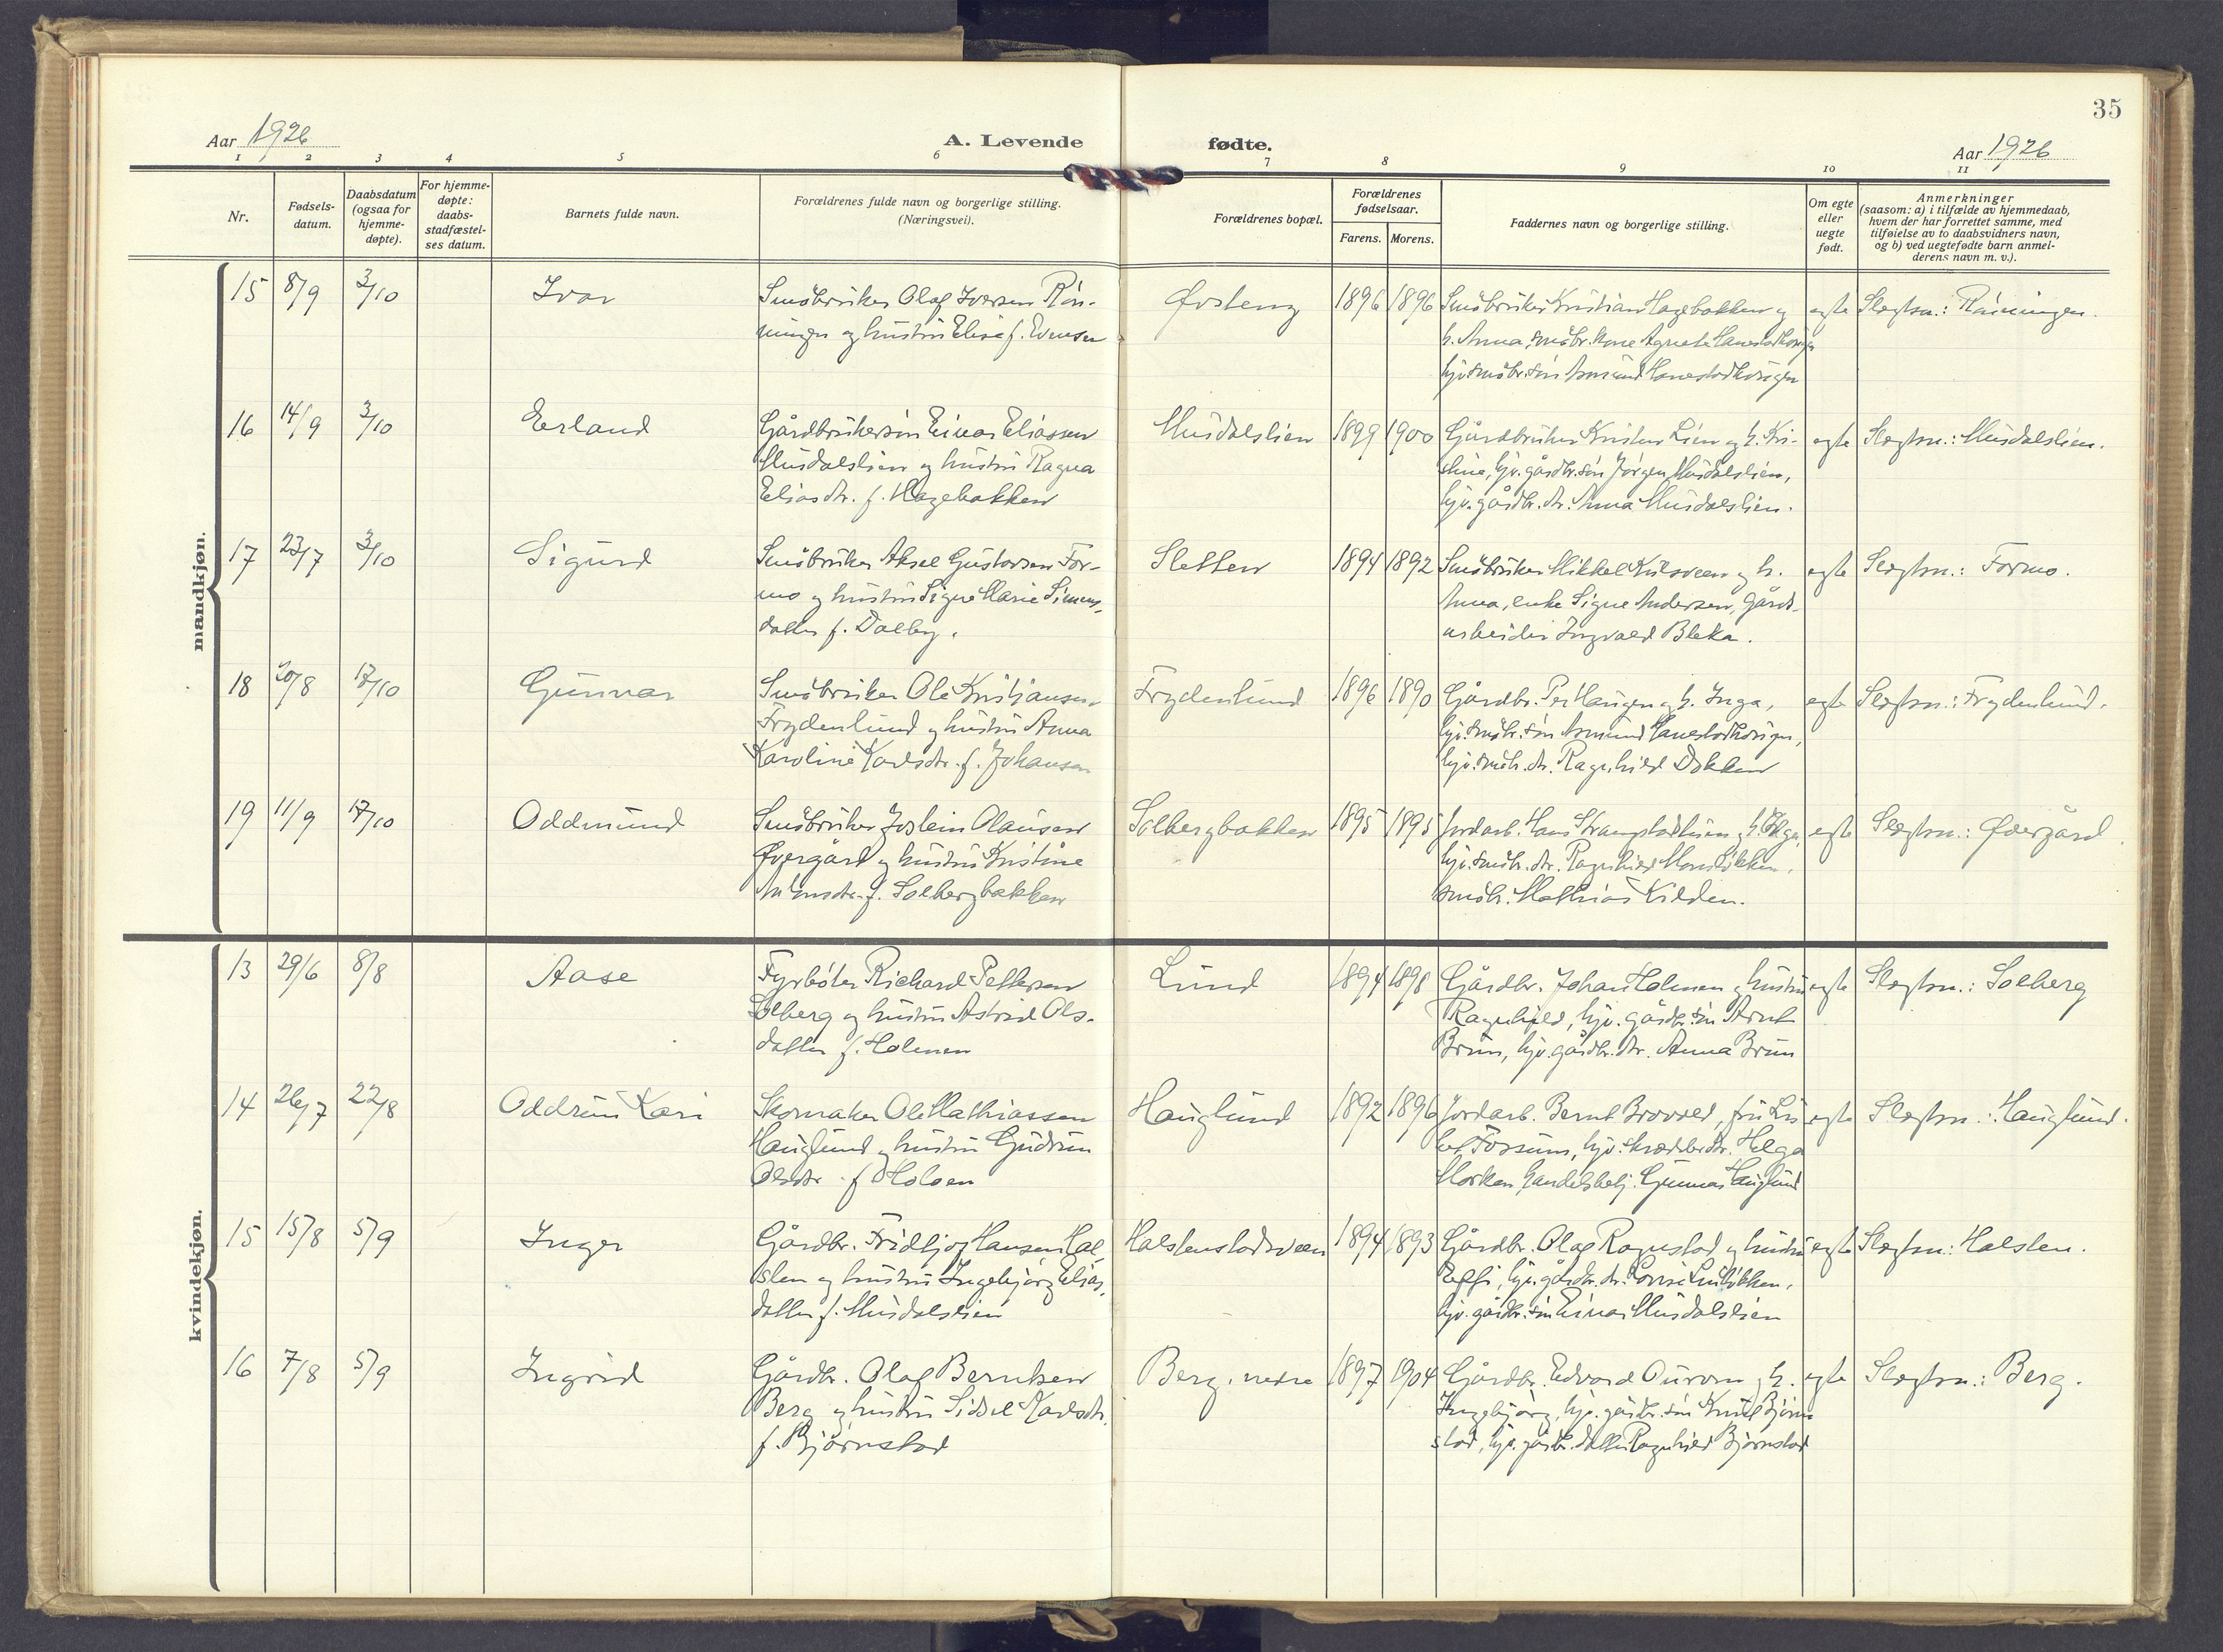 35
Aar 1926
A. Levende
fødte.
Aar 1926
1 2 3 4 5 6 7 8 9 10 11
Nr.
Fødsels-
datum.
Daabsdatum
(ogsaa for
hjemme-
døpte).
For hjemme-
døpte:
daabs-
stadfæstel-
ses datum.
Barnets fulde navn.
Forældrenes fulde navn og borgerlige stilling.
(Næringsvei).
Forældrenes bopæl.
Forældrenes
fødselsaar.
Farens. Morens.
Faddernes navn og borgerlige stilling.
Om egte
eller
uegte
født.
Anmerkninger
(saasom: a) i tilfælde av hjemmedaab,
hvem der har forrettet samme, med
tilføielse av to daabsvidners navn,
og b) ved uegtefødte barn anmel-
derens navn m. v.).
mandkjøn.
15 8/9 3/10 Ivar
Småbruker Olaf Iversen Røn-
ningen og hustru Elise f. Evensen
Østeng 1896 1896
Småbruker Kristian Hagebakken og
h. Anna, småbr. kone Agnete
hjv. småbr. søn Asmund
egte Slegtsn.: Rønningen.
16 14/9 3/10 Erland
Gårdbrukersøn Einar Eliassen
Musdalslien og hustru Ragna
Eliasdtr. f. Hagebakken
Musdalslien 1899 1900
Gårdbruker Kristen Lien og h. Kri-
stine, hjv. gårdbr. søn Jørgen Musdalslien,
hjv. gårdbr. dtr. Anna Musdalslien.
egte Slegtsn.: Musdalslien.
17 23/7 3/10 Sigurd
Småbruker Aksel Gustavsen For-
mo og hustru Signe Marie Simens-
datter f. Dalby.
Sletten 1894 1892
Småbruker Mikkel og h.
Anna, enke Signe Andersen, gårds-
arbeider Ingvald Bleka.
egte Slegtsn.: Formo.
18 20/8 17/10 Gunnar
Småbruker Ole Kristiansen
Frydenlund og hustru Anna
Karoline Karlsdtr. f. Johansen
Frydenlund 1896 1890
Gårdbr. Per Haugen og h. Inga,
hjv. småbr. søn Asmund
hjv. småbr. dtr. Ragnhild Dokken
egte Slegtsn.: Frydenlund.
19 11/9 17/10 Oddmund
Småbruker Jostein Olausen
Øvergård og hustru Kristine
f. Solbergbakken
Solbergbakken 1895 1895
Jordarb. Hans og h. Helga,
hjv. småbr. dtr. Ragnhild
småbr. Mathias Kilden.
egte Slegtsn.: Øvergård
kvindekjøn.
13 29/6 8/8 Aase
Fyrbøter Richard Pettersen
Solberg og hustru Astrid Ols-
datter f. Holmen
Lund 1894 1898
Gårdbr. Johan Holmen og hustru
Ragnhild, hjv. gårdbr. søn Arnt
Brun, hjv. gårdbr. dtr. Anna Brun
egte Slegtsn.: Solberg
14 26/7 22/8 Oddrun Kari
Skomaker Ole Mathiassen
Hauglund og hustru Gudrun
Olsdtr. f. Holoen
Hauglund 1892 1896
Jordarb. Bernt Brovold, fru Lis-
bet Fossum, hjv. Helga
Morken, handelsbetj. Gunnar Hauglund
egte Slegtsn.: Hauglund.
15 15/8 5/9 Inger
Gårdbr. Fridtjof Hansen Hal-
sten og hustru Ingebjørg Elias-
datter f. Musdalslien
Halstenstadsveen 1894 1893
Gårdbr. Olaf Rognstad og hustru
hjv. gårdbr. dtr.
hjv. gårdbr. søn Einar Musdalslien
egte Slegtsn: Halsten.
16 7/8 5/9 Ingrid
Gårdbr. Olaf Berntsen
Berg og hustru Sidsel Karlsdtr.
f. Bjørnstad
Berg, nedre 1897 1904
Gårdbr. Edvard Ourom og h.
Ingebjørg, hjv. gårdbr. søn Knut Bjørn-
stad, hjv. gårdbr. datter Ragnhild Bjørnstad
egte Slegtsn.: Berg.